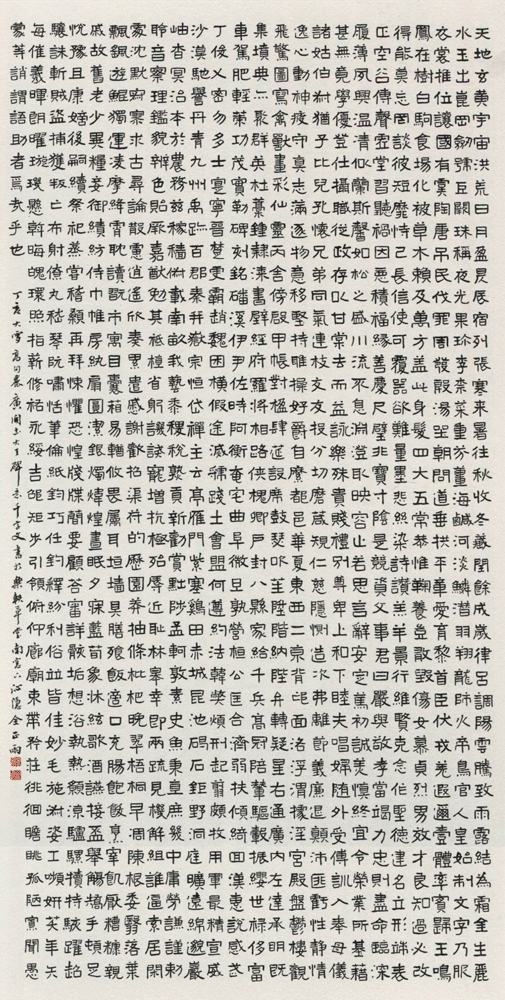 天地玄黃宇宙洪荒日月盈昃辰宿列張寒來暑往秋收冬藏閏餘成歲律呂調陽雲騰致雨露結為霜金生麗
水玉出崑岡劍號巨闕珠稱夜光果珍李柰菜重芥薑海鹹河淡鱗潛羽翔龍師火帝鳥官人皇始制文字乃服
衣裳推位讓國有虞陶唐弔民伐罪周發殷湯坐朝問道垂拱平章愛育黎首臣伏戎羌遐邇壹體率賓歸王鳴
鳳在樹白駒食場化被草木賴及萬方蓋此身髮四大五常恭惟鞠養豈敢毀傷女慕貞烈男效才良知過必改
得能莫忘罔談彼短靡恃己長信使可覆器欲難量墨悲絲染詩讚羔羊景行維賢克念作聖德建名立形端表
正空谷傳聲虛堂習聽禍因惡積福緣善慶尺璧非寶寸陰是競資父事君曰嚴與敬孝當竭力忠則盡命臨深
履薄夙興溫凊似蘭斯馨如松之盛川流不息淵澄取映容止若思言辭安定篤初誠美慎終宜令榮業所基籍
甚無竟學優登仕攝職從政存以甘棠去而益詠樂殊貴賤禮別尊卑上和下睦夫唱婦隨外受傅訓入奉母儀
諸姑伯叔猶子比兒孔懷兄弟同氣連枝交友投分切磨箴規仁慈隱惻造次弗離節義廉退顛沛匪虧性靜情
逸心動神疲守真志滿逐物意移堅持雅操好爵自縻都邑華夏東西二京背邙面洛浮渭據涇宮殿盤鬱樓觀
飛驚圖寫禽獸畫彩仙靈丙舍傍啟甲帳對楹肆筵設席鼓瑟吹笙陞階納陛弁轉疑星右通廣內左達承明既
集墳典亦聚群英杜稾鍾隸漆書壁經府羅將相路俠槐卿戶封八縣家給千兵高冠陪輦驅轂振纓世祿侈富
車駕肥輕策功茂實勒碑刻銘磻溪伊尹佐時阿衡奄宅曲阜微旦孰營桓公匡合濟弱扶傾綺迴漢惠說感武
丁俊乂密勿多士寔寧晉楚更霸趙魏困橫假途滅虢踐土會盟何遵約法韓弊煩刑起翦頗牧用軍最精宣威
沙漠馳譽丹青九州禹跡百郡秦并嶽宗恒岱禪主云亭雁門紫塞雞田赤城昆池碣石鉅野洞庭曠遠綿邈巖
岫杳冥治本於農務茲稼穡俶載南畝我藝黍稷稅熟貢新勸賞黜陟孟軻敦素史魚秉直庶幾中庸勞謙謹勑
聆音察理鑑貌辨色貽厥嘉猷勉其祗植省躬譏誡寵增抗極殆辱近恥林皋幸即兩疏見機解組誰逼索居閑
處沈默寂寥求古尋論散慮逍遙欣奏累遣慼謝歡招渠荷的歷園莽抽條枇杷晚翠梧桐早凋陳根委翳落葉
飄颻遊鯤獨運凌摩絳霄耽讀翫市寓目囊箱易輶攸畏屬耳垣墻具膳飧飯適口充腸飽飫烹宰飢厭糟糠親
戚故舊老少異糧妾御績紡侍巾帷房紈扇圓潔銀燭煒煌晝眠夕寐藍筍象床弦歌酒讌接盃舉觴矯手頓足
悅豫且康嫡後嗣續祭祀蒸嘗稽顙再拜悚懼恐惶牋牒簡要顧答審詳骸垢想浴執熱願涼驢騾犢特駭躍超
驤誅斬賊盜捕獲叛亡布射僚丸嵇琴阮嘯恬筆倫紙鈞巧任釣釋紛利俗並皆佳妙毛施淑姿工嚬妍笑年矢
每催羲暉朗曜璇璣懸斡晦魄環照指薪修祐永綏吉邵矩步引領俯仰廊廟束帶矜莊徘徊瞻眺孤陋寡聞愚
蒙等誚謂語助者焉哉乎也
丁亥大雪高句麗廣開土大王碑千字文書於軒草堂南窗下沁隱全正雨